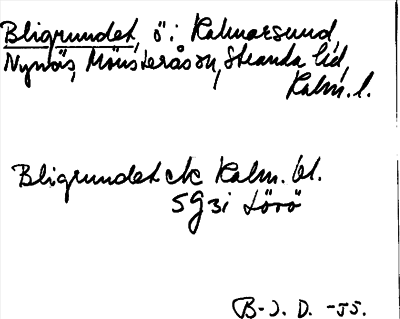 Bligrundet, ö i Kalmarsund,
Nynäs, Mönsterås sn, Stranda hd,
Kalm. l.
Bligrundet ek Kalm. bl.
5G3i Lövö
B-J. D. -55.